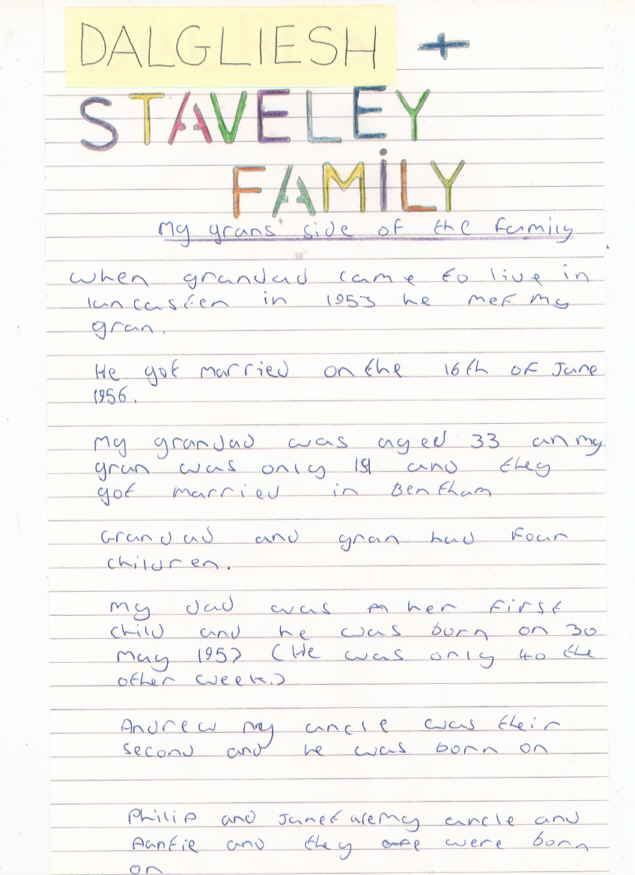 DALGLIESH +
STAVELEY
FAMILY
My grans' side of the family
when grandad came to live in
lancaster in 1953 he met my
gran.
He got married on the 16th of June
1956.
My grandad was aged 33 an my
gran was only 19 and they
got married in Bentham
Grandad and gran had four
children.
My dad was her first
child and he was born on 30
May 1957 (He was only 40 the
other week.)
Andrew my uncle was their
second and he was born on
Philip and Janet are my uncle and
Auntie and they were born
on